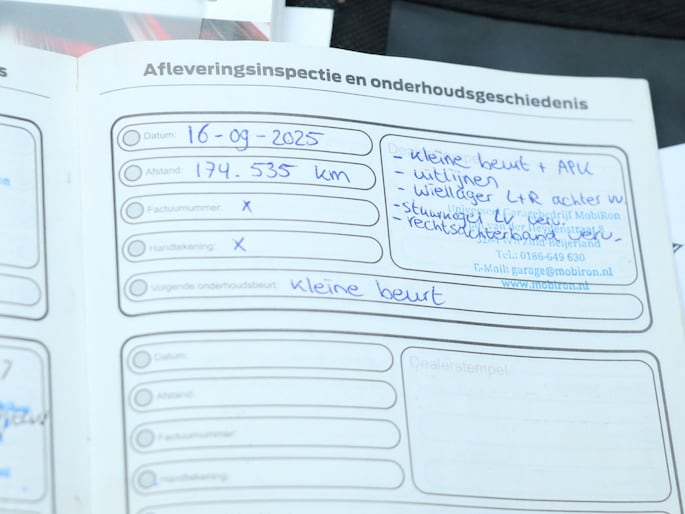 s
Afleveringsinspectie en onderhoudsgeschiedenis
Datum: 16-09-2025
Afstand: 174.535 km
Factuurnummer: x
Handtekening: x
Volgende onderhoudsbeurt: Kleine beurt
- Kleine beurt + APK
- uitlijnen
- wiellager L+R achter vv
- stuurkogel LV verv.
- rechtsachterband verv.
Garagebedrijf MobiRon
Tel.: 0186-649 630
E-Mail: garage@mobiron.nl
www.mobiron.nl
Datum:
Afstand:
Factuurnummer:
Handtekening:
Dealerstempel
7